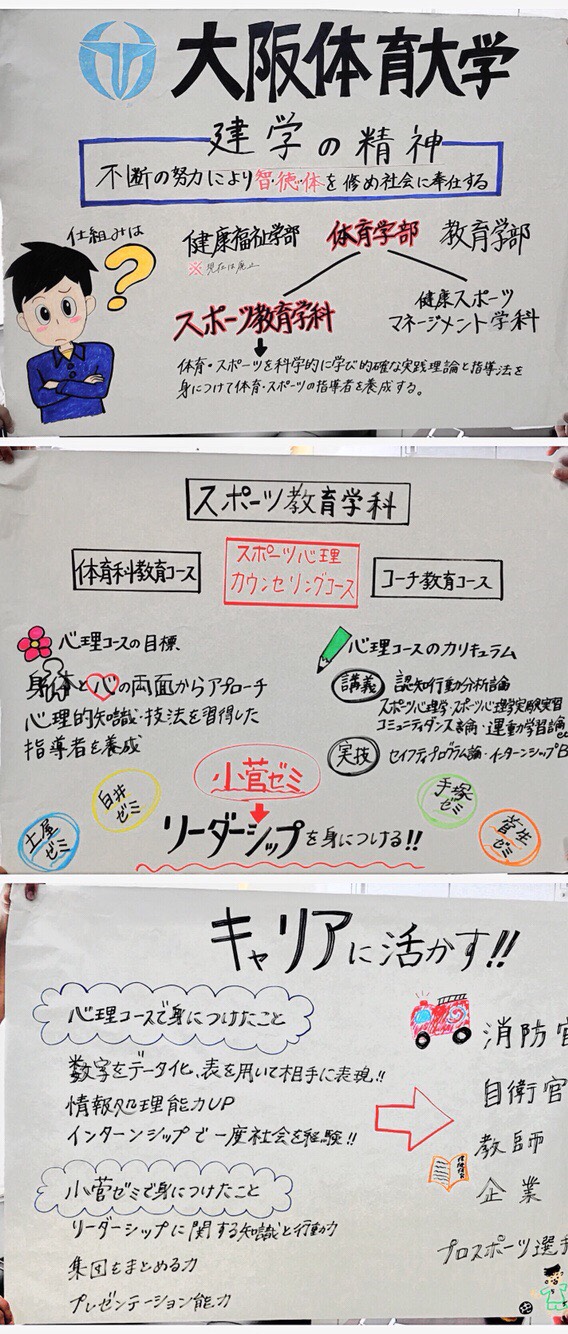 大阪体育大学
建学の精神
不断の努力により智・徳・体を修め社会に奉仕する
仕組みは
?
健康福祉学部
体育学部
教育学部
※現在は廃止
スポーツ教育学科
健康スポーツ
マネージメント学科
体育・スポーツを科学的に学び的確な実践理論と指導法を
身につけて体育・スポーツの指導者を養成する。
スポーツ教育学科
体育科教育コース
スポーツ心理
カウンセリングコース
コーチ教育コース
心理コースの目標、
身体と心の両面からアプローチ
心理的知識・技法を習得した
指導者を養成
心理コースのカリキュラム
講義
認知行動分析論
スポーツ心理学・スポーツ心理学実験実習
コミュニティダンス論・運動学習論
実技
セイフティプログラム論・インターンシップB
小菅ゼミ
リーダーシップを身につける!!
土屋
ゼミ
白井
ゼミ
手塚
ゼミ
菅生
ゼミ
キャリアに活かす!!
心理コースで身につけたこと
数字をデータ化、表を用いて相手に表現!!
情報処理能力UP
インターンシップで一度社会を経験!!
小菅ゼミで身につけたこと
リーダーシップに関する知識と行動力
集団をまとめる力
プレゼンテーション能力
消防官
自衛官
教師
企業
プロスポーツ選手